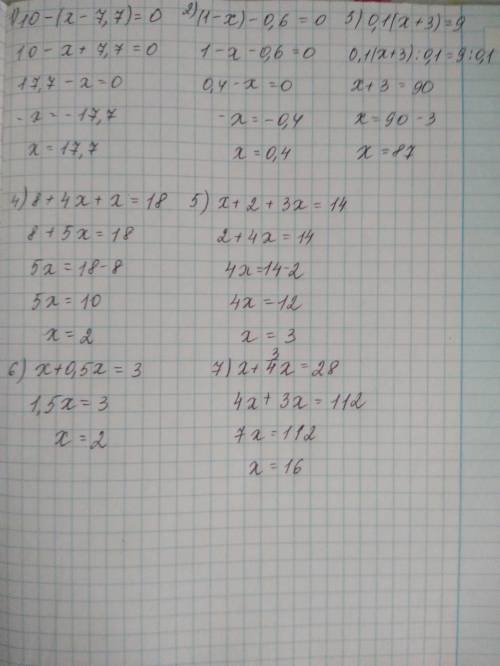 1) 10 - (x - 7,7) = 0
10 - x + 7,7 = 0
17,7 - x = 0
- x = - 17,7
x = 17,7
2) (1 - x) - 0,6 = 0
1 - x - 0,6 = 0
0,4 - x = 0
- x = - 0,4
x = 0,4
3) 0,1(x + 3) = 9
0,1(x+3) : 0,1 = 9 : 0,1
x + 3 = 90
x = 90 - 3
x = 87
4) 8 + 4x + x = 18
8 + 5x = 18
5x = 18 - 8
5x = 10
x = 2
5) x + 2 + 3x = 14
2 + 4x = 14
4x = 14 - 2
4x = 12
x = 3
6) x + 0,5x = 3
1,5x = 3
x = 2
7) x + 3/4x = 28
4x + 3x = 112
7x = 112
x = 16